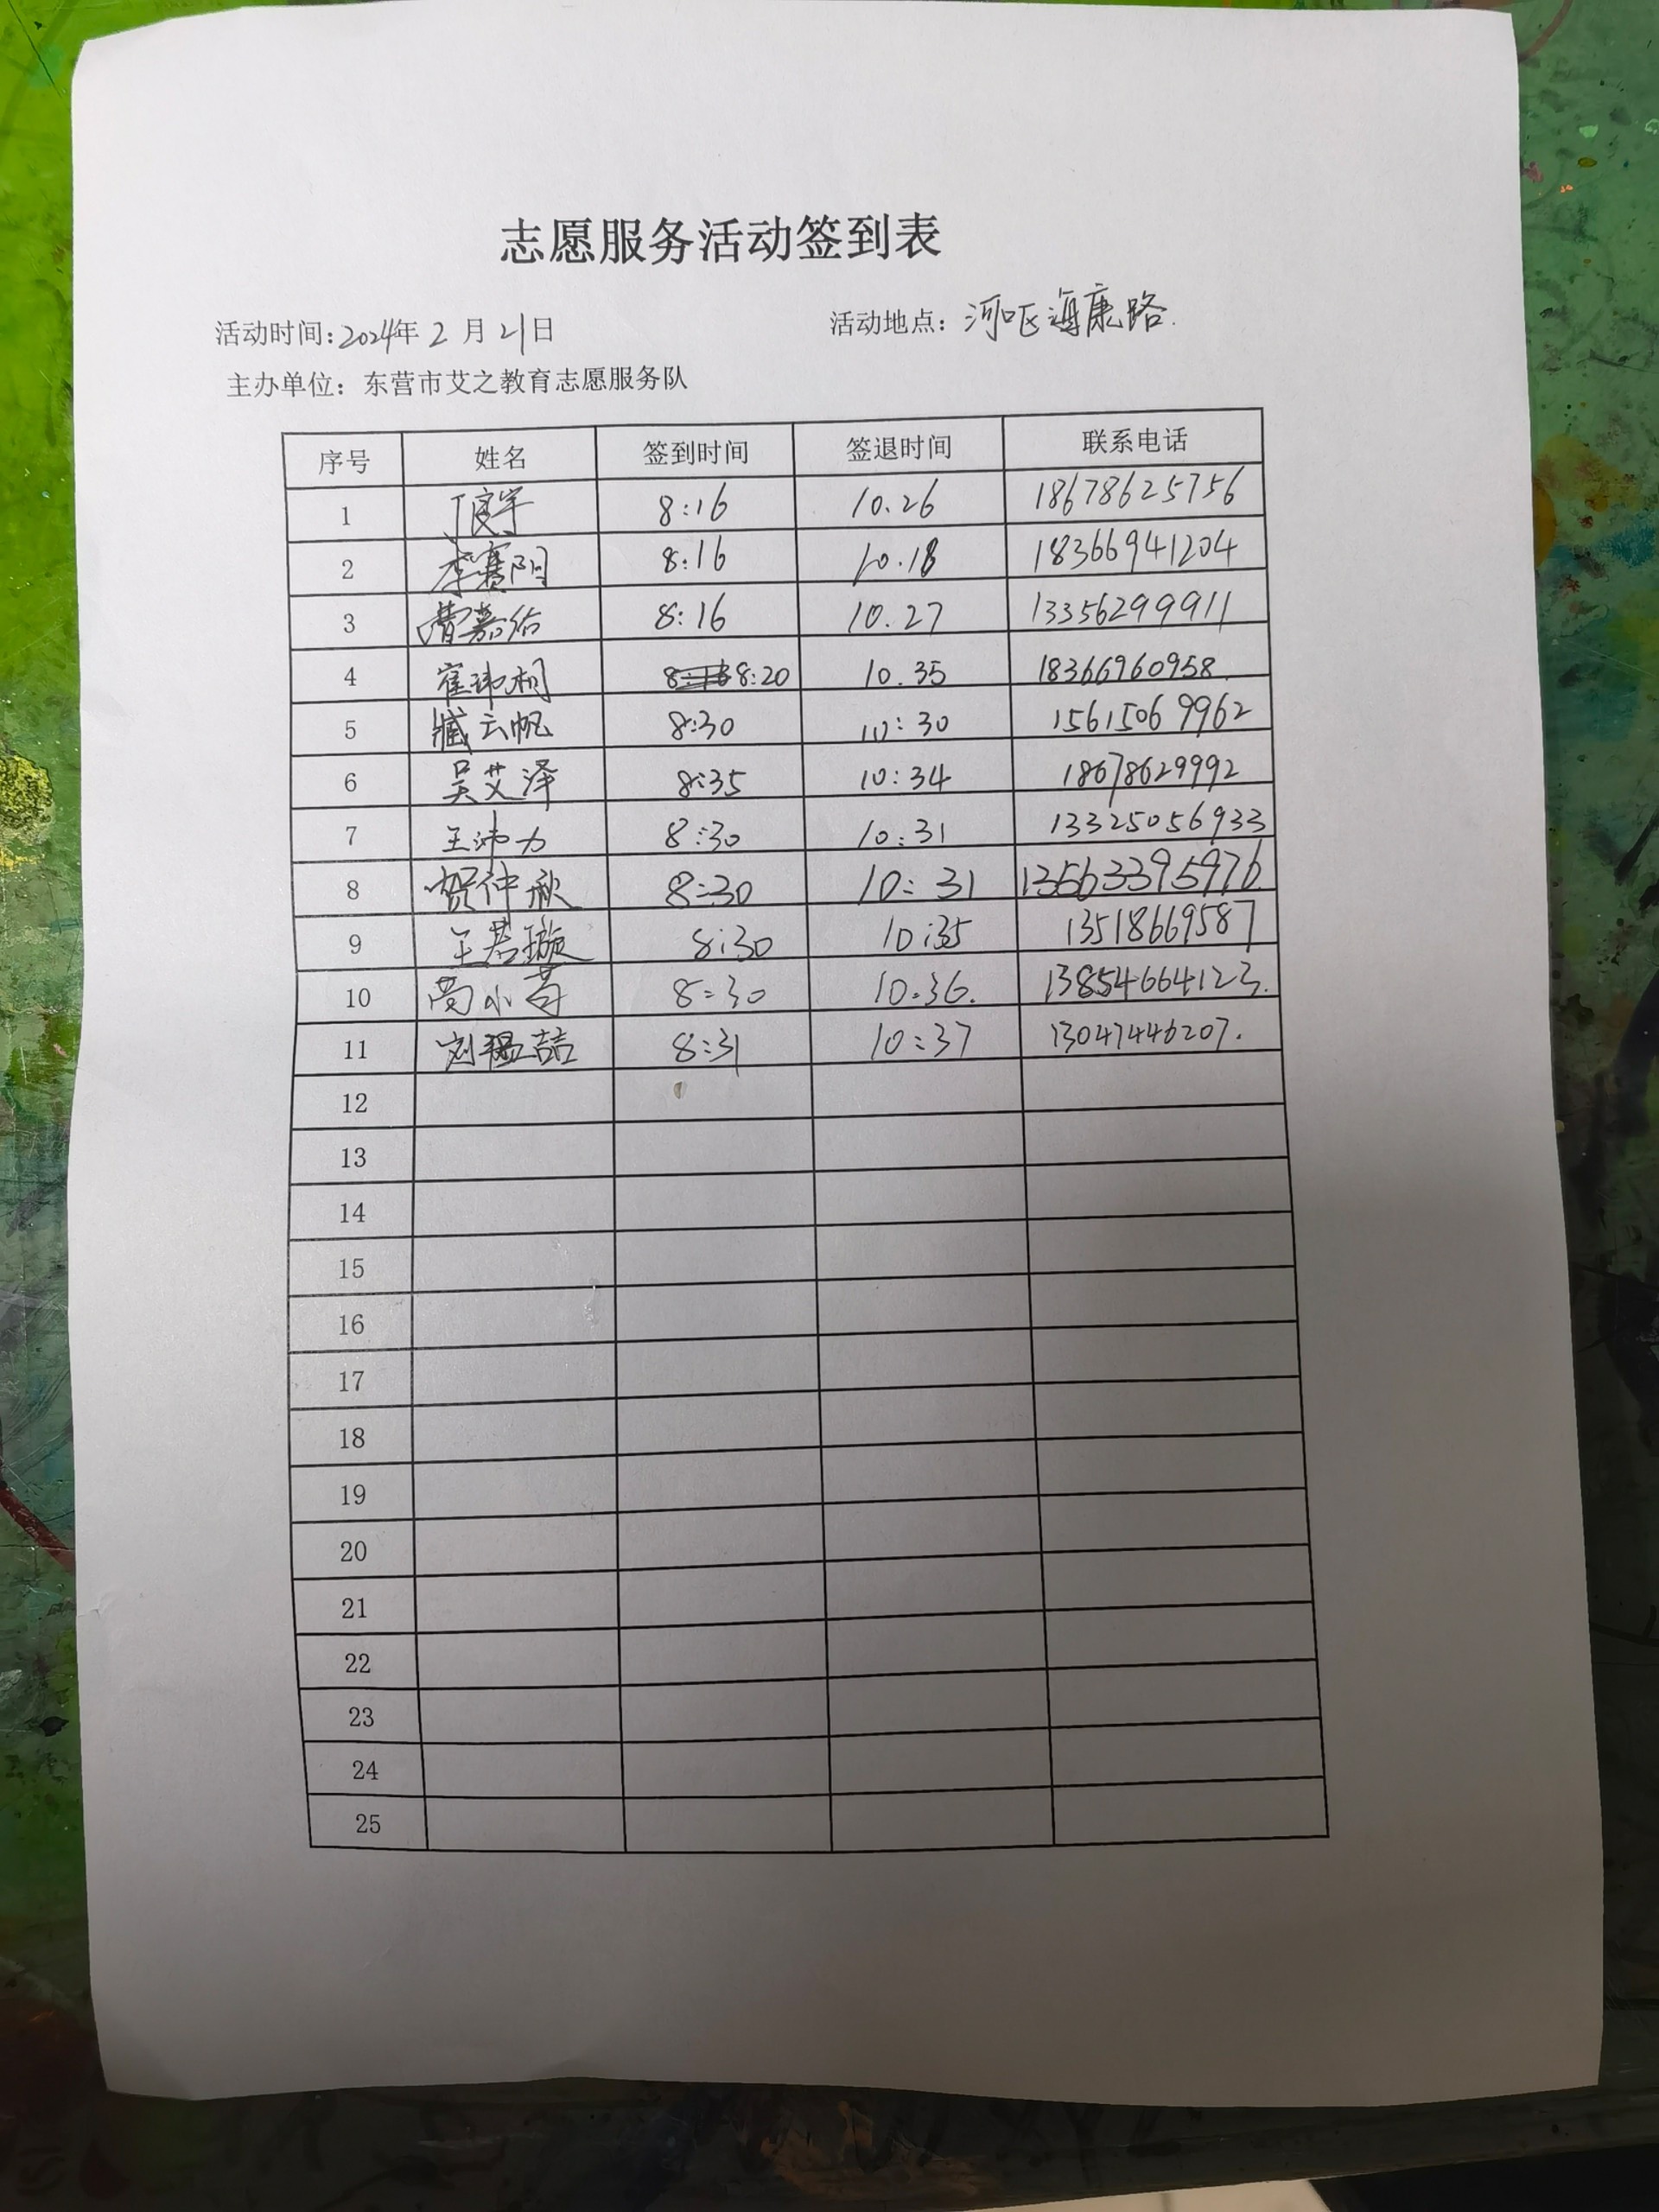 志愿服务活动签到表
活动时间：2024年 2 月 21日 活动地点：河口区海康路.
主办单位：东营市艾之教育志愿服务队
序号 姓名 签到时间 签退时间 联系电话
1 丁良宇 8:16 10.26 18678625756
2 李赛阳 8:16 10.18 18366941204
3 曹嘉佑 8:16 10.27 13356299911
4 崔玮桐 8:20 10.35 18366960958.
5 臧云帆 8:30 10:30 15615069962
6 吴艾泽 8:35 10:34 18678629992
7 王沛力 8:30 10:31 13325056933
8 贺仲秋 8:30 10:31 13563395976
9 王若璇 8:30 10:35 13518669587
10 8:30 10:36. 13854664123.
11 8:31 10:37 13047446207.
12
13
14
15
16
17
18
19
20
21
22
23
24
25